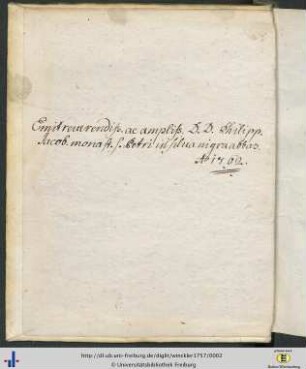 Emit reverendiss. ac ampliss. D. D. Philipp.
Jacob. monast. S. Petri in silva nigra abbas.
Aō 1760.
http://dl.ub.uni-freiburg.de/diglit/winckler1757/0002
© Universitätsbibliothek Freiburg